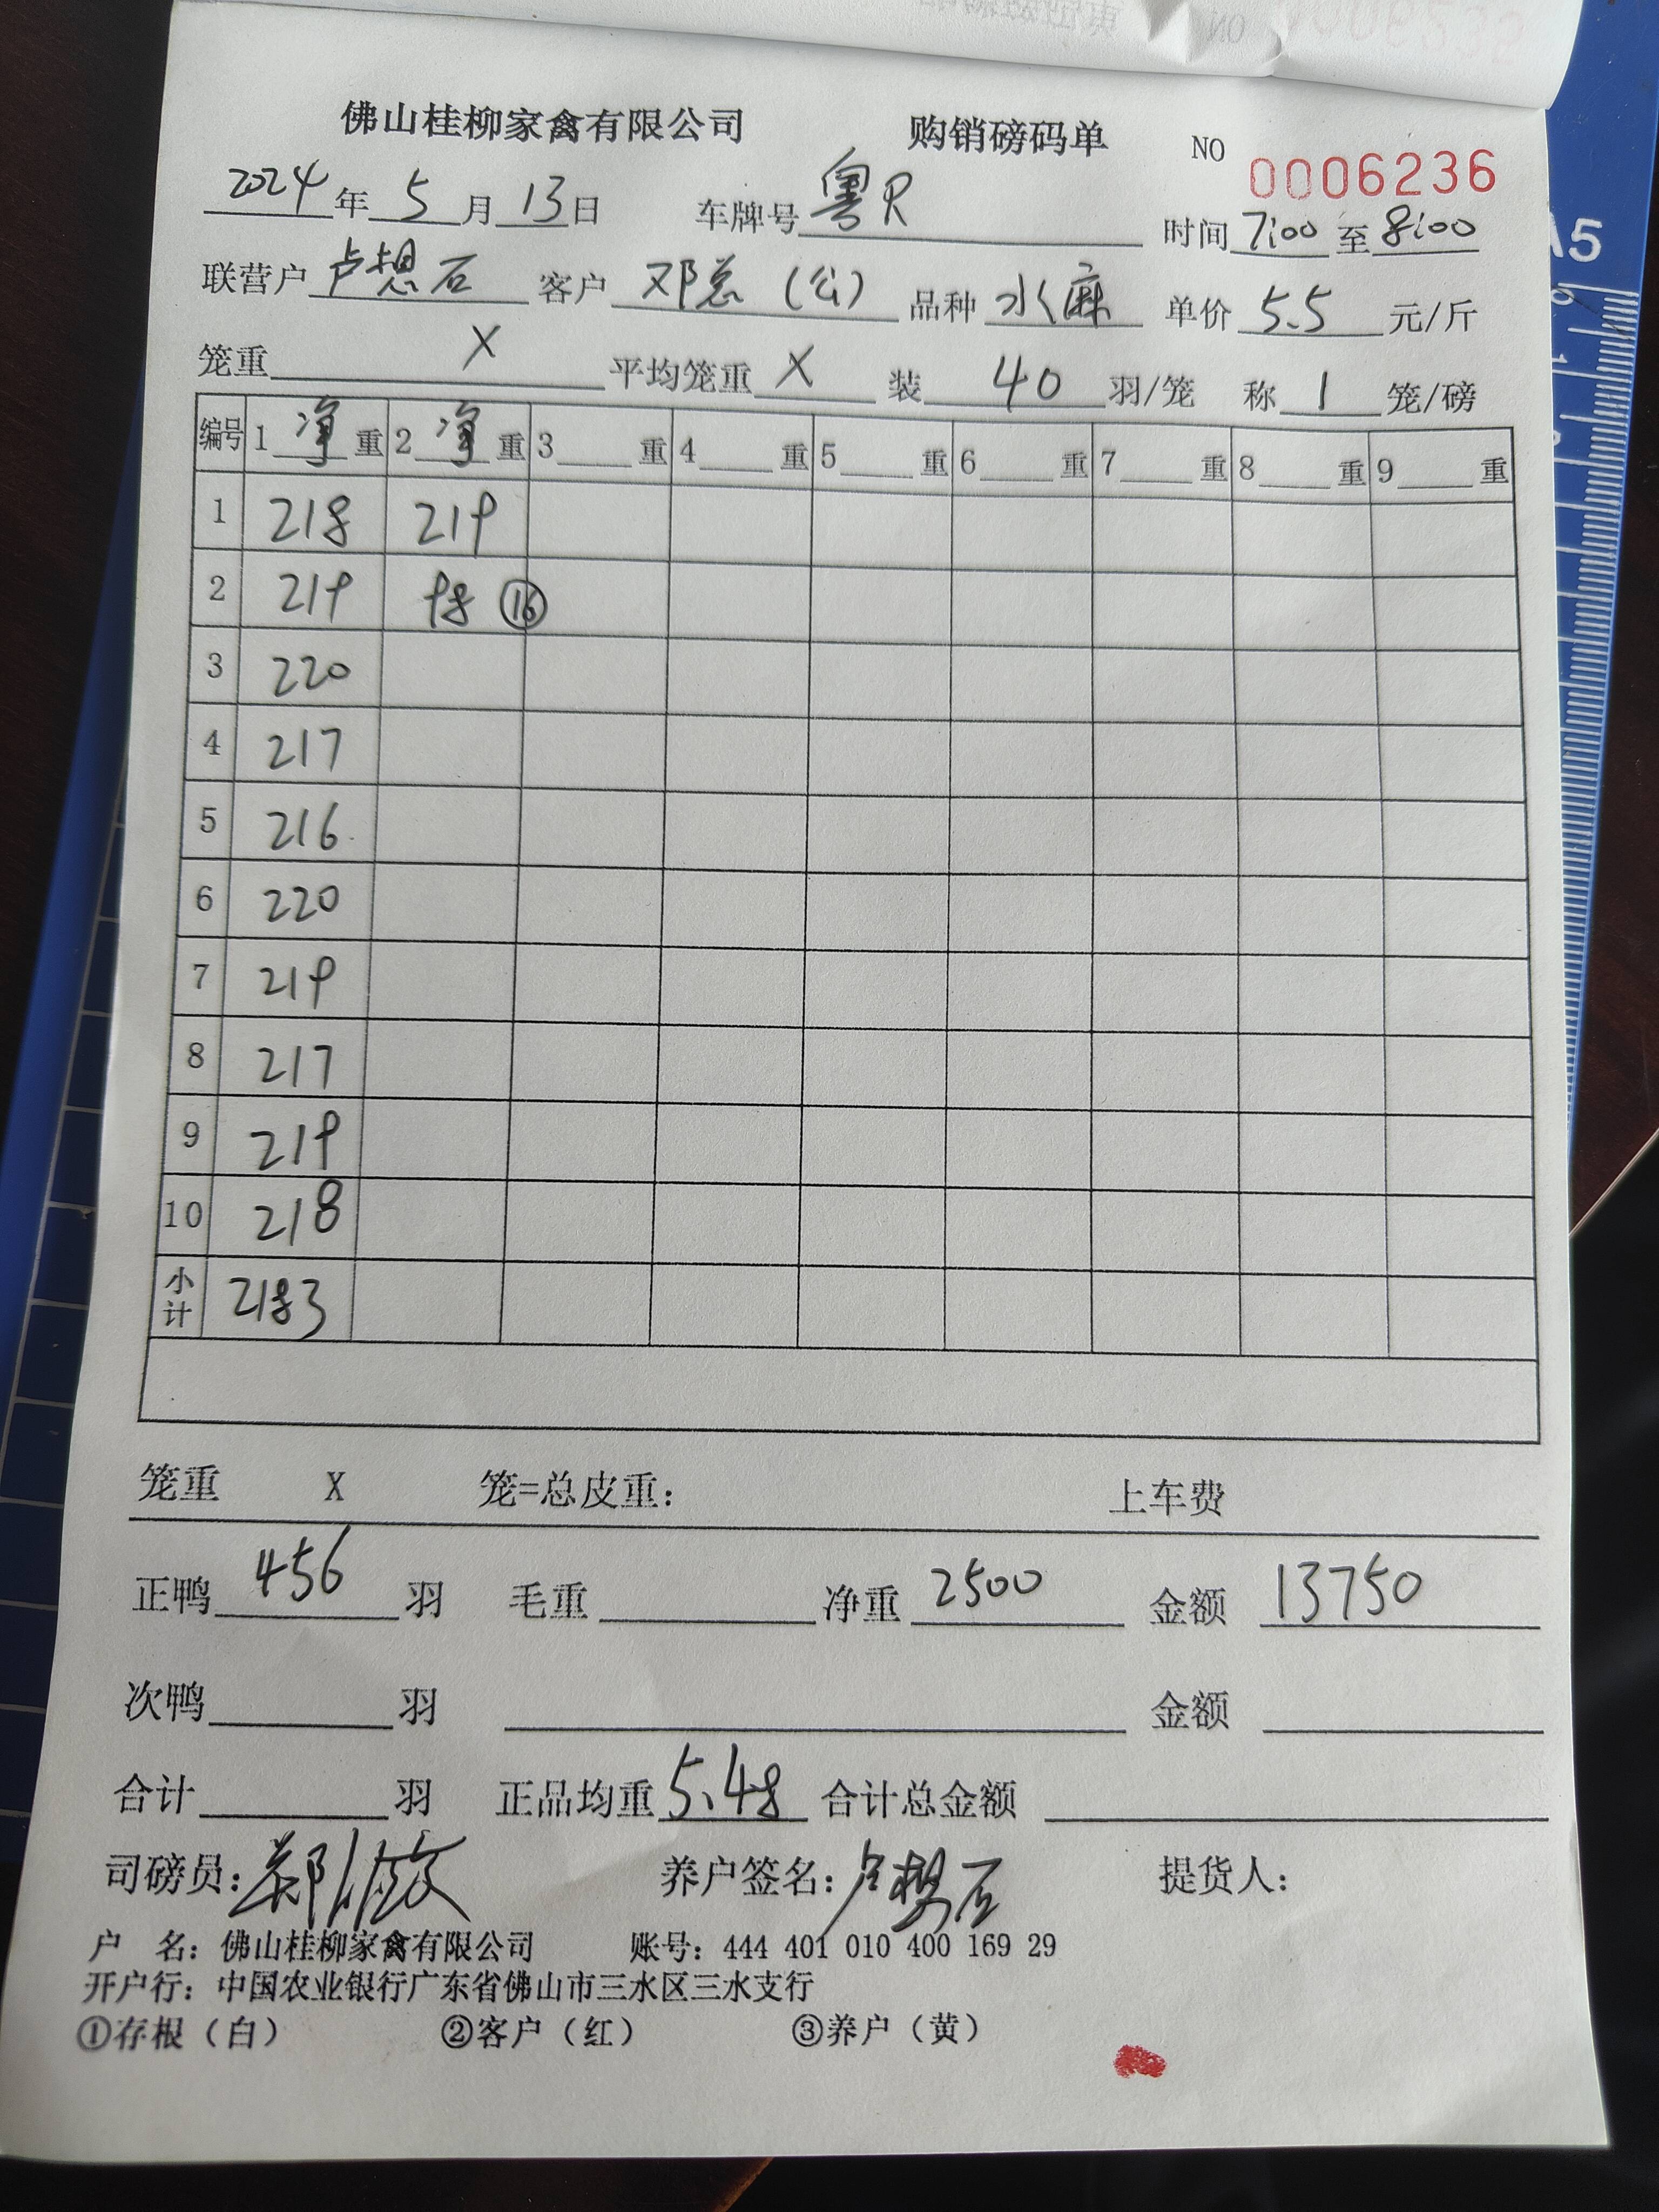 佛山桂柳家禽有限公司 购销磅码单 NO 0006236
2024年5月13日 车牌号粤R 时间7:00至8:00
联营户卢想石 客户邓总（公） 品种水麻 单价5.5元/斤
笼重X 平均笼重X 装40羽/笼 称1笼/磅
编号 1净重 2净重 3重 4重 5重 6重 7重 8重 9重
1 218 219
2 219 98 ⑯
3 220
4 217
5 216
6 220
7 219
8 217
9 219
10 218
小计 2183
笼重 X 笼=总皮重： 上车费
正鸭456羽 毛重 净重2500 金额13750
次鸭羽 金额
合计羽 正品均重5.48 合计总金额
司磅员： 养户签名：卢想石 提货人：
户 名：佛山桂柳家禽有限公司 账号：444 401 010 400 169 29
开户行：中国农业银行广东省佛山市三水区三水支行
①存根（白） ②客户（红） ③养户（黄）
A5